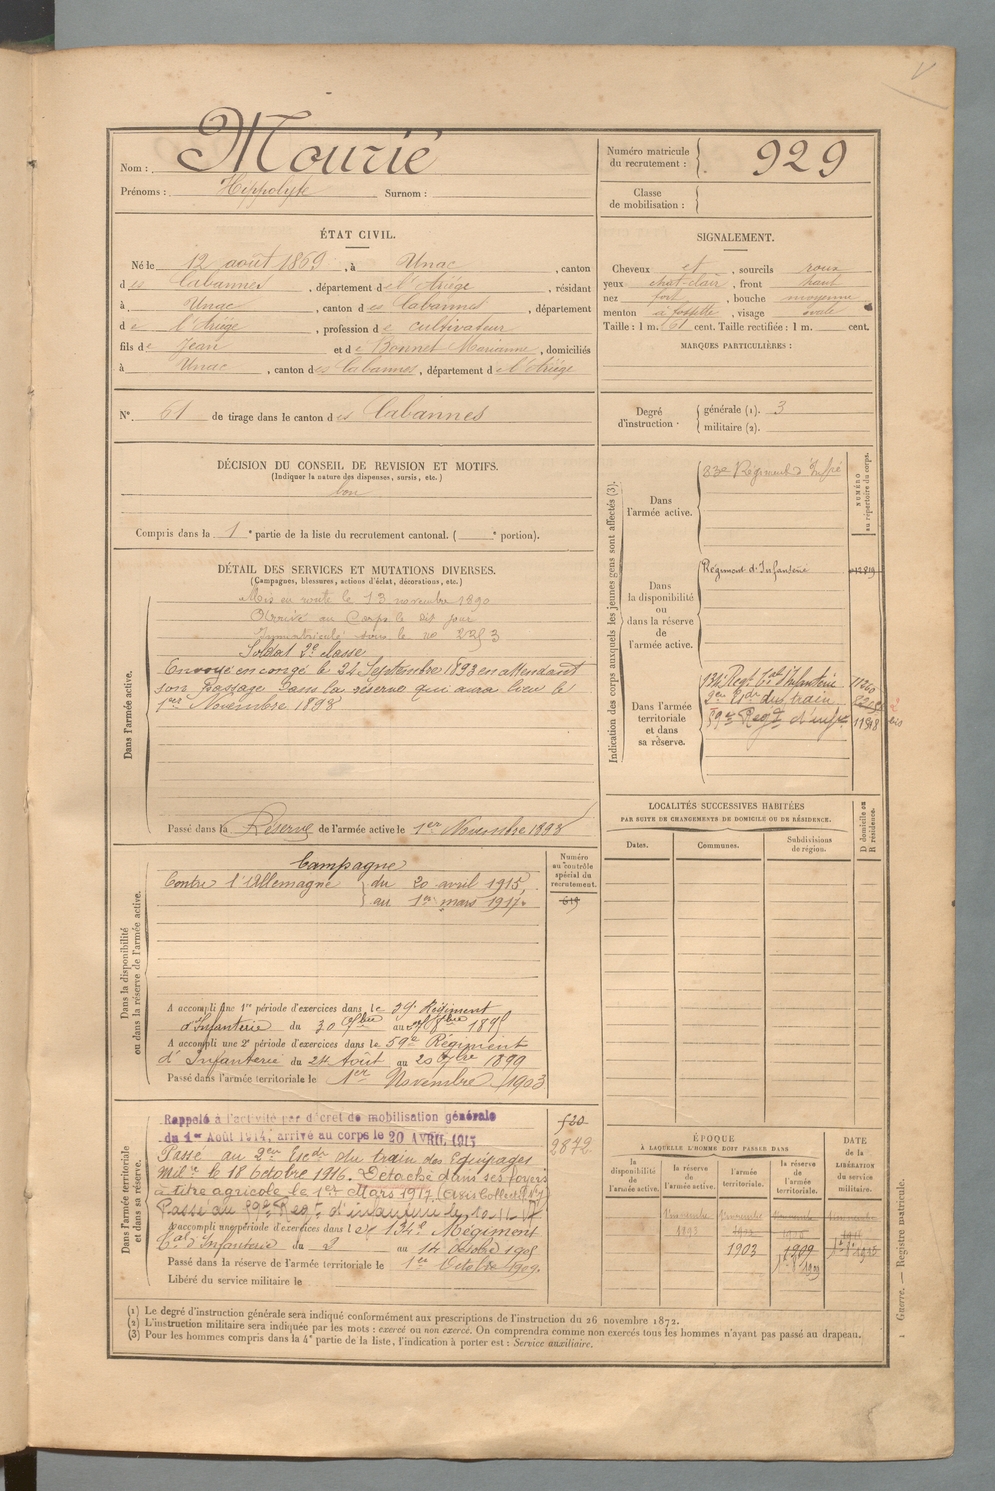 Nom : Mourié
Prénoms : Hippolyte Surnom :
Numéro matricule du recrutement : 929
Classe de mobilisation :
ÉTAT CIVIL.
Né le 12 août 1869, à Unac, canton
des Cabannes, département de l'Ariège, résidant
à Unac, canton des Cabannes, département
de l'Ariège, profession de cultivateur
fils de Jean et de Bonnet Marianne, domiciliés
à Unac, canton des Cabannes, département de l'Ariège
N° 61 de tirage dans le canton des Cabannes
SIGNALEMENT.
Cheveux et, sourcils roux
yeux chat-clair, front haut
nez fort, bouche moyenne
menton à fossette, visage ovale
Taille : 1 m. 61 cent. Taille rectifiée : 1 m. cent.
MARQUES PARTICULIÈRES :
Degré d'instruction
générale (1). 3
militaire (2).
DÉCISION DU CONSEIL DE REVISION ET MOTIFS.
(Indiquer la nature des dispenses, sursis, etc.)
bon
Compris dans la 1e partie de la liste du recrutement cantonal. ( e portion).
DÉTAIL DES SERVICES ET MUTATIONS DIVERSES.
(Campagnes, blessures, actions d'éclat, décorations, etc.)
Dans l'armée active.
Mis en route le 13 novembre 1890
Arrivé au Corps le dit jour
Immatriculé sous le no
Soldat 2e classe
Envoyé en congé le 24 Septembre 1893 en attendant
son passage dans la réserve qui aura lieu le
1er Novembre 1893
Passé dans la Réserve de l'armée active le 1er Novembre 1893
Indication des corps auxquels les jeunes gens sont affectés (3).
NUMÉRO au répertoire du corps.
Dans l'armée active.
83e Régiment d'Infrie
Dans la disponibilité ou dans la réserve de l'armée active.
Régiment d'Infanterie
Dans l'armée territoriale et dans sa réserve.
134e Regt tal d'Infanterie
2eme Esdr du train
59e Regt d'infie
Dans la disponibilité ou dans la réserve de l'armée active.
Campagne
Contre l'Allemagne du 20 avril 1915,
au 1er mars 1917.
Numéro au contrôle spécial du recrutement.
619
A accompli une 1re période d'exercices dans le 59e Régiment
d'Infanterie du 30 7bre au 8bre 1895
A accompli une 2e période d'exercices dans le 59e Régiment
d'Infanterie du 24 Août au 20 7bre 1899
Passé dans l'armée territoriale le 1er Novembre 1903
Dans l'armée territoriale et dans sa réserve.
Rappelé à l'activité par décret de mobilisation générale
du 1er Août 1914, arrivé au corps le 20 AVRIL 1915
Passé au 2eme Escdr du train des Equipages
Milres le 18 Octobre 1916. Détaché dans ses foyers
à titre agricole le 1er Mars 1917
Passé au 59e Regt d'infanterie le
A accompli une période d'exercices dans le 134e Régiment
tal d'Infanterie du 2 au 14 Octobre 1905
Passé dans la réserve de l'armée territoriale le 1er Octobre 1909.
Libéré du service militaire le
520
2872
LOCALITÉS SUCCESSIVES HABITÉES
PAR SUITE DE CHANGEMENTS DE DOMICILE OU DE RÉSIDENCE.
Dates. Communes. Subdivisions de région. D domicile ou R résidence.
ÉPOQUE
À LAQUELLE L'HOMME DOIT PASSER DANS
la disponibilité de l'armée active. la réserve de l'armée active. l'armée territoriale. la réserve de l'armée territoriale.
DATE de la LIBÉRATION du service militaire.
1893 1903 1909
(1) Le degré d'instruction générale sera indiqué conformément aux prescriptions de l'instruction du 26 novembre 1872.
(2) L'instruction militaire sera indiquée par les mots : exercé ou non exercé. On comprendra comme non exercés tous les hommes n'ayant pas passé au drapeau.
(3) Pour les hommes compris dans la 4e partie de la liste, l'indication à porter est : Service auxiliaire.
1 Guerre. — Registre matricule.